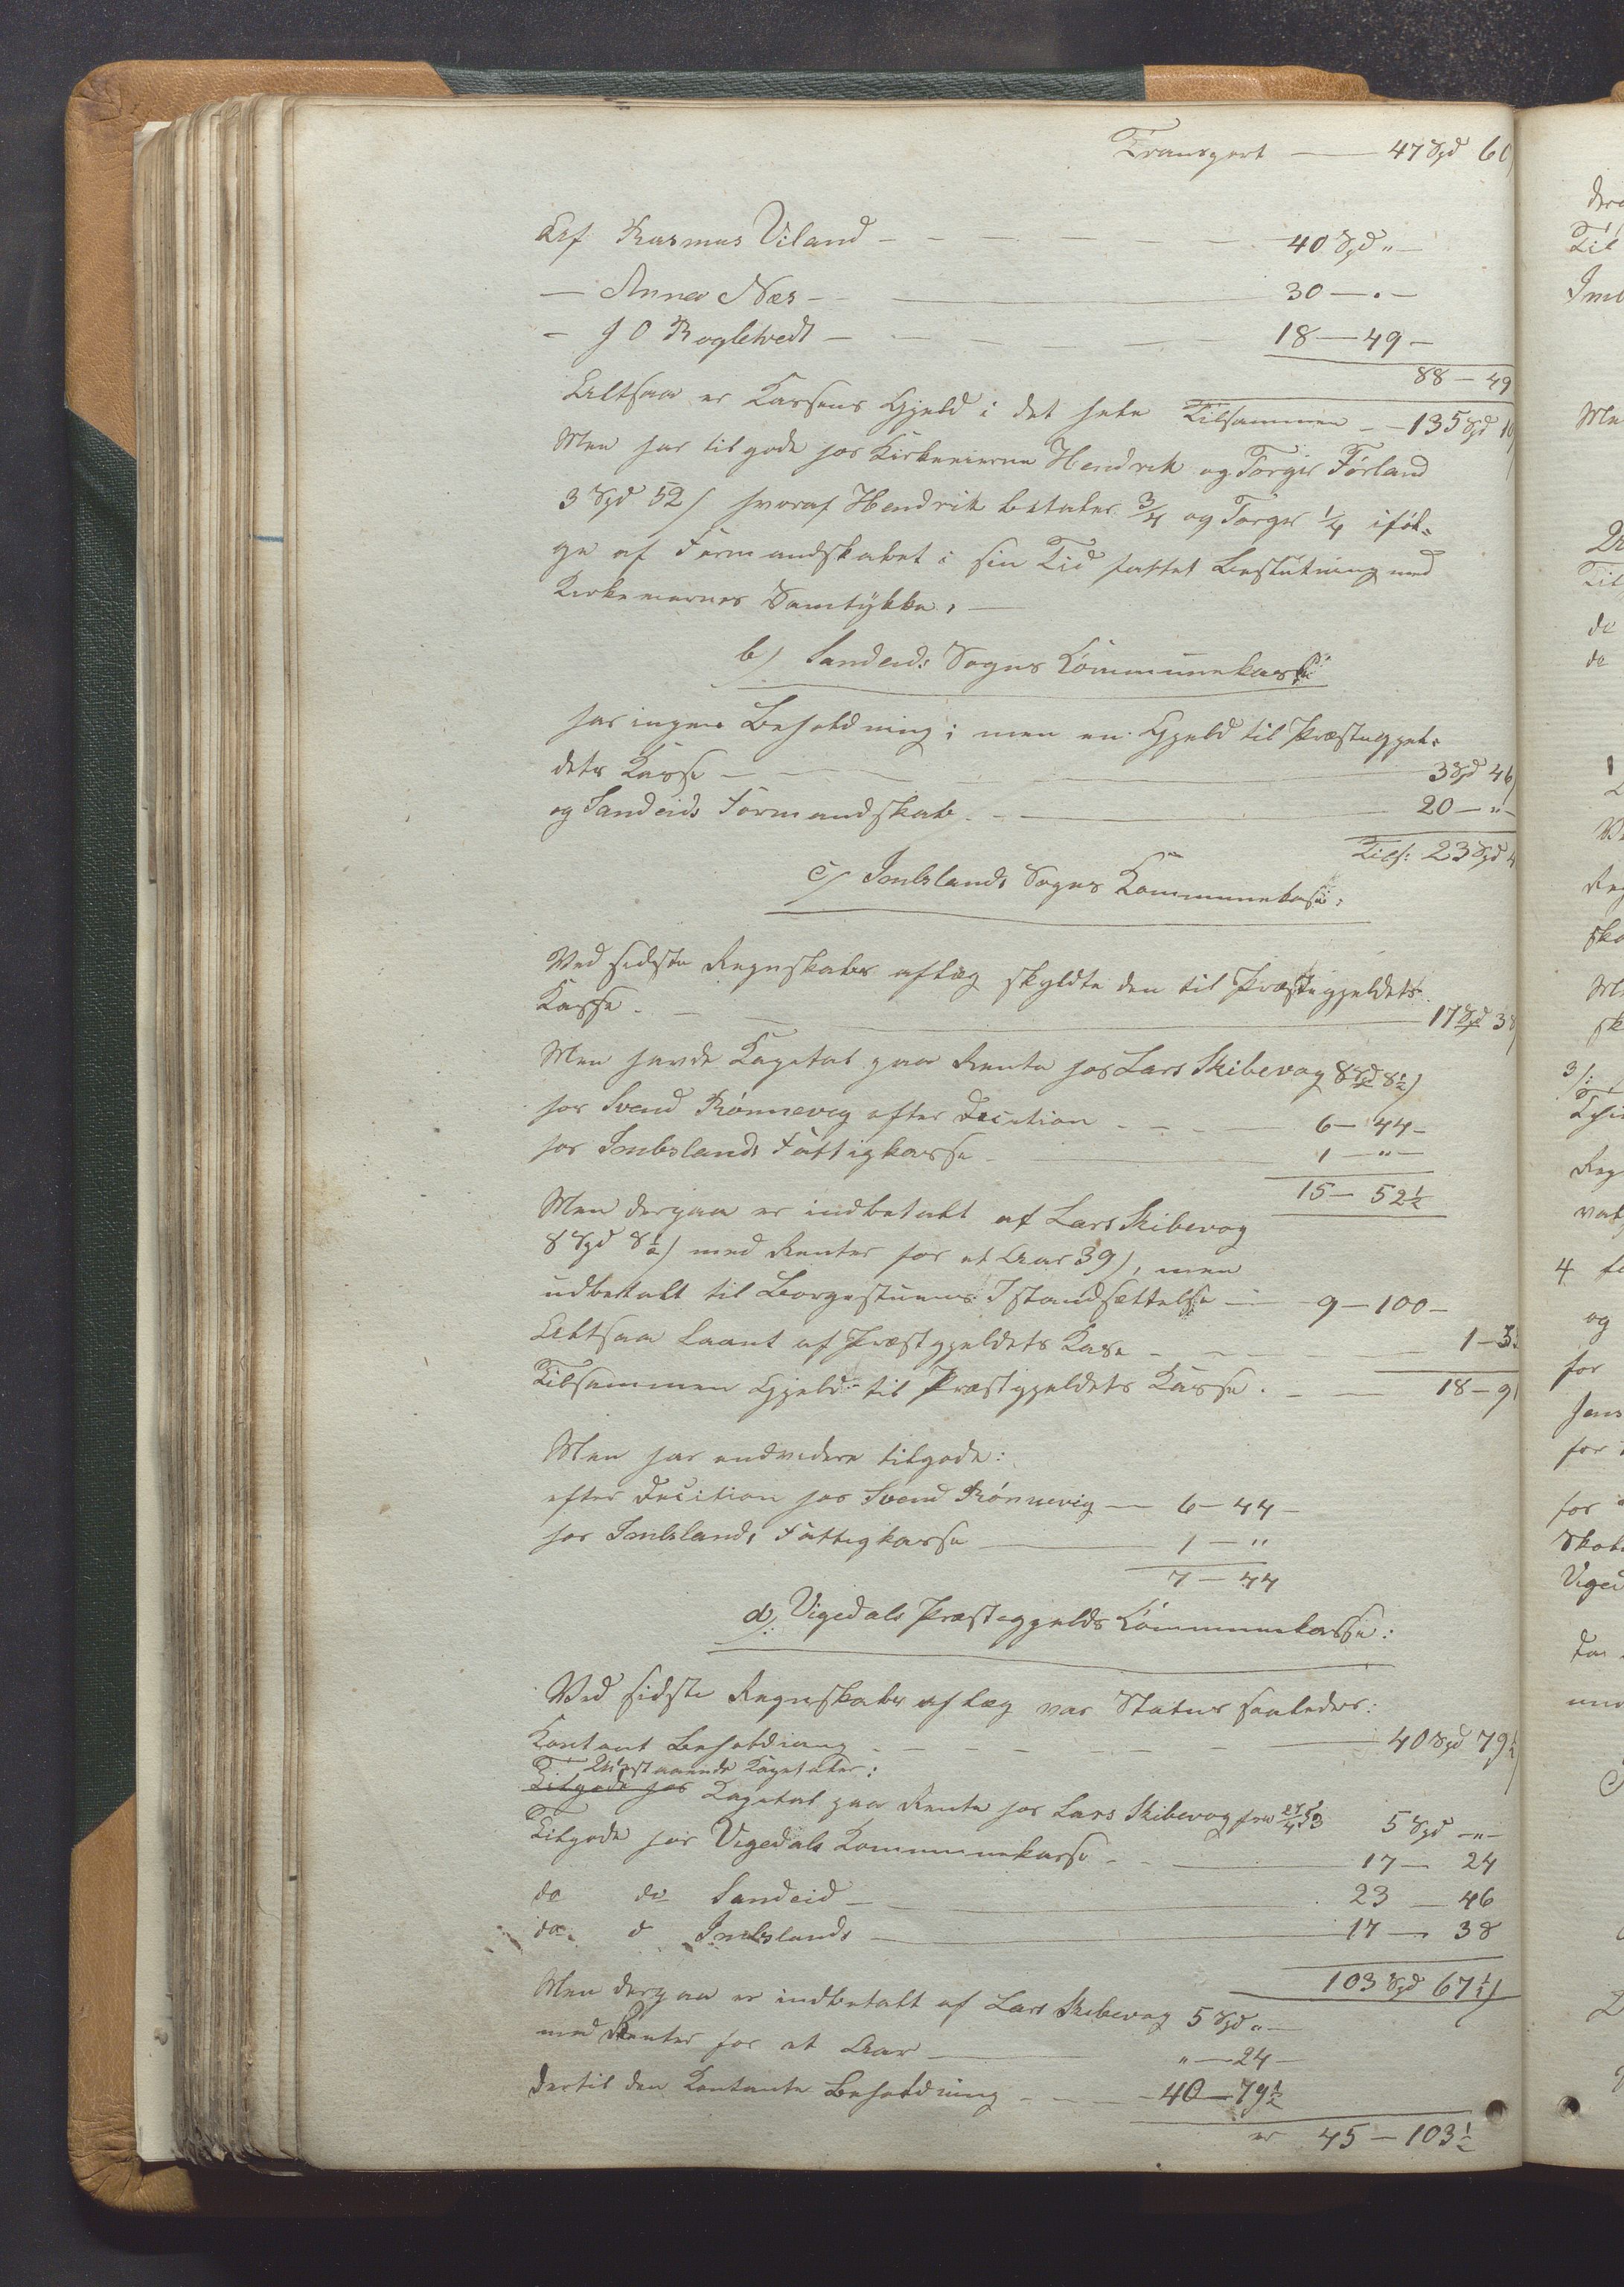 Transport — 47 Spd 6
Af Rasmus Viland — 40 Spd " —
— Anna Næs — 30 — " —
— J O Rogletvedt — 18 — 49 —
88 — 49
Altsaa er Kassens Gjeld i det hele Tilsammen — 135 Spd 10
Men har tilgode hos Kirkeeierne Hendrik og Torger Førland
3 Spd 52/ hvoraf Hendrik betaler 3/4 og Torger 1/4 iføl-
ge af Formandskabet i sin Tid fattet Beslutning med
Kirkeeiernes Samtykke. —
b) Sandeids Sogns Kommunekasse
har ingen Beholdning; men en Gjeld til Præstegjel-
dets Kasse — 3 Spd 46/
og Sandeids Formandskab — 20 — " —
Tils: 23 Spd 4
c/ Imbslands Sogns Kommunekasse:
Ved sidste Regnskabs aflæg skyldte den til Præstegjeldets
Kasse — 17 Spd 38
Men havde Kapital paa Rente hos Lars Skibevog 8 Spd 8½/
hos Svend Rønnevig efter Decition — 6 — 44 —
hos Imbslands Fattigkasse — 1 — " —
15 — 52½
Men derpaa er indbetalt af Lars Skibevog
8 Spd 8½/ med Renter for et Aar 39/, men
udbetalt til Borgestuens Istandsættelse — 9 — 100 —
Altsaa laant af Præstgjeldets Kasse — 1 — 5
Tilsammen Gjeld til Præstgjeldets Kasse. — 18 — 9
Men har endvidere tilgode:
efter Decition hos Svend Rønnevig — 6 — 44 —
hos Imbslands Fattigkasse — 1 — "
7 — 44
d/: Vigedals Præstegjelds Kommunekasse:
Ved sidste Regnskabs aflæg var Status saaledes:
Kontant Beholdning — 40 Spd 79½
Udestaaende Kapitaler:
Tilgode hos Kapital paa Rente hos Lars Skibevog fra 5 Spd — " —
Tilgode hos Vigedals Kommunekasse — 17 — 24
do do Sandeid — 23 — 46
do d Imbslands — 17 — 38
103 Spd 67½/
Men derpaa er indbetalt af Lars Skibevog 5 Spd " —
med Renter for et Aar — " — 24 —
dertil den Kontante Beholdning — 40 — 79½
er 45 — 103½